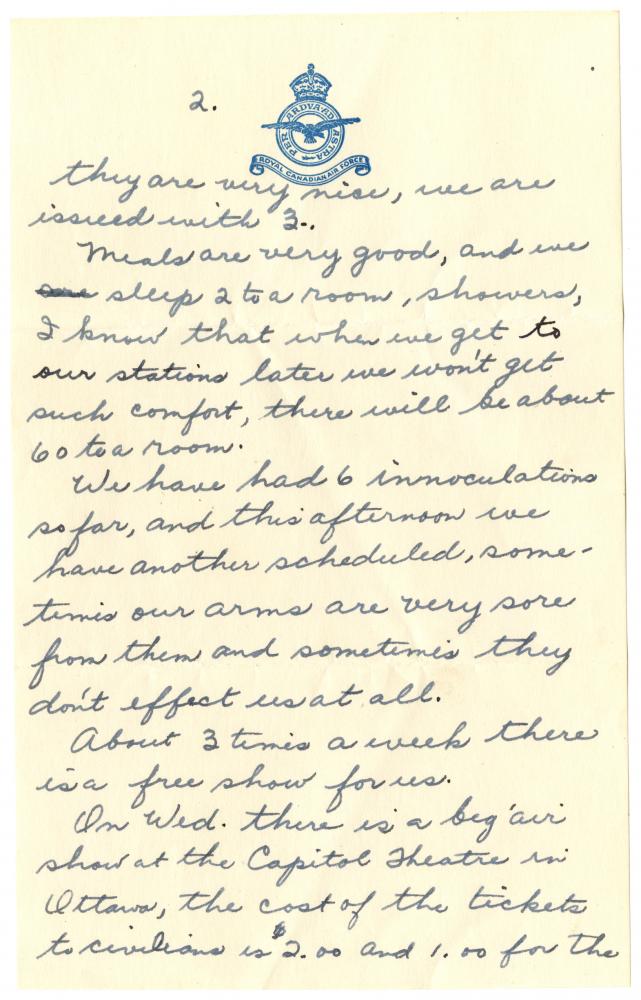 2.
PER ARDVA AD ASTRA
ROYAL CANADIAN AIR FORCE
they are very nice, we are
issued with 3.
Meals are very good, and we
are sleep 2 to a room, showers,
I know that when we get to
our stations later we won't get
such comfort, there will be about
60 to a room.
We have had 6 innoculations
so far, and this afternoon we
have another scheduled, some-
times our arms are very sore
from them and sometimes they
don't effect us at all.
About 3 times a week there
is a free show for us.
On Wed. there is a big air
show at the Capitol Theatre in
Ottawa, the cost of the tickets
to civilians is $2.00 and 1.00 for the